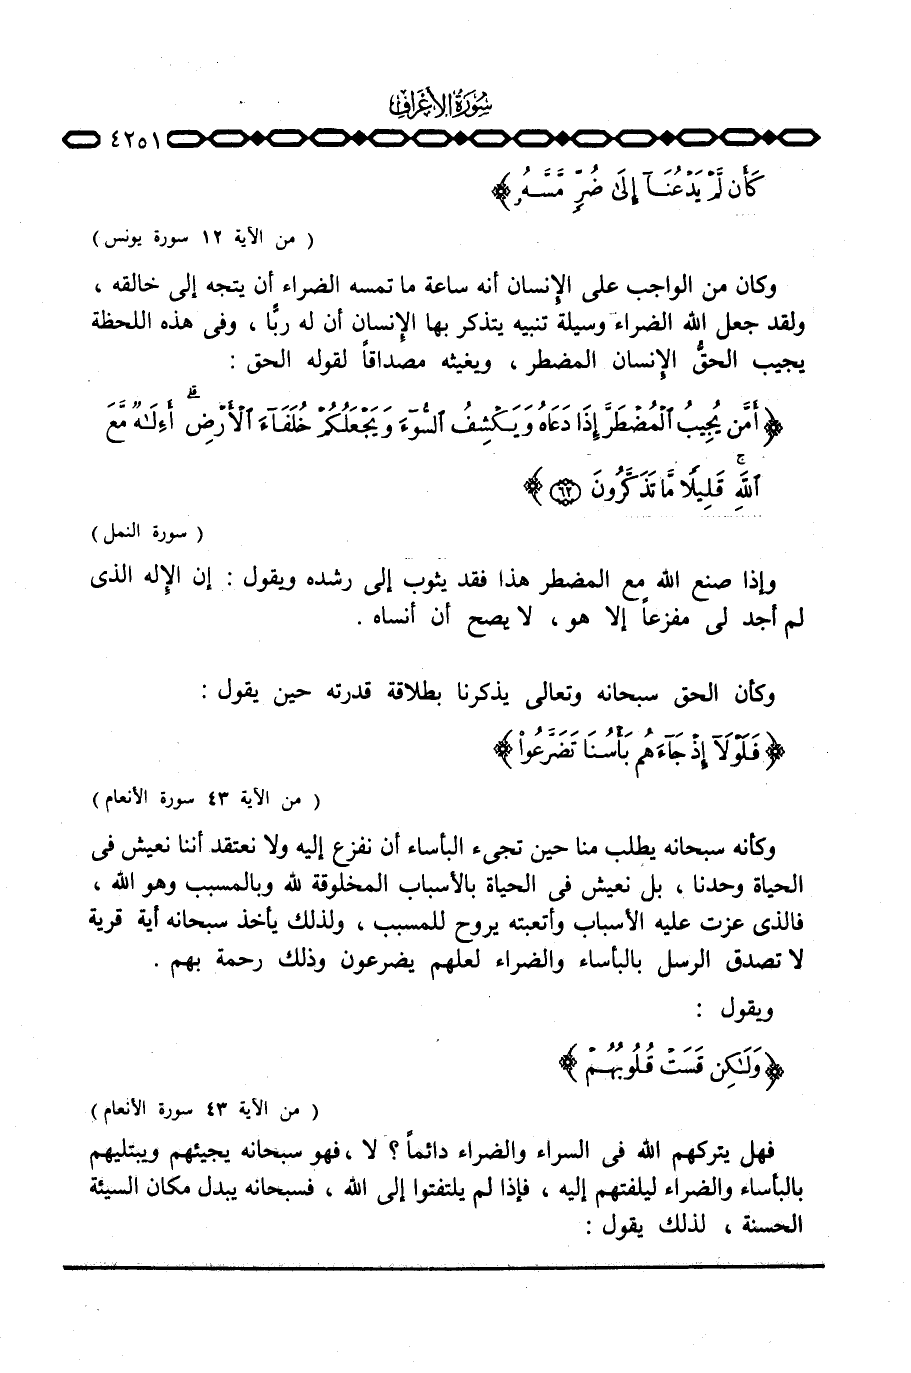 سُورَةُ الأَعْرَافِ
٤٢٥١
كَأَن لَّمْ يَدْعُنَآ إِلَىٰ ضُرٍّ مَّسَّهُۥ ﴾
( من الآية ١٢ سورة يونس )
وكان من الواجب على الإنسان أنه ساعة ما تمسه الضراء أن يتجه إلى خالقه ،
ولقد جعل الله الضراء وسيلة تنبيه يتذكر بها الإنسان أن له ربًّا ، وفى هذه اللحظة
يجيب الحقُّ الإنسان المضطر ، ويغيثه مصداقاً لقوله الحق :
﴿ أَمَّن يُجِيبُ ٱلْمُضْطَرَّ إِذَا دَعَاهُ وَيَكْشِفُ ٱلسُّوٓءَ وَيَجْعَلُكُمْ خُلَفَآءَ ٱلْأَرْضِ ۗ أَءِلَٰهٌ مَّعَ
ٱللَّهِ ۚ قَلِيلًا مَّا تَذَكَّرُونَ ٦٢ ﴾
( سورة النمل )
وإذا صنع الله مع المضطر هذا فقد يثوب إلى رشده ويقول : إن الإله الذى
لم أجد لى مفزعاً إلا هو ، لا يصح أن أنساه .
وكأن الحق سبحانه وتعالى يذكرنا بطلاقة قدرته حين يقول :
﴿ فَلَوْلَآ إِذْ جَآءَهُم بَأْسُنَا تَضَرَّعُوا۟ ﴾
( من الآية ٤٣ سورة الأنعام )
وكأنه سبحانه يطلب منا حين تجىء البأساء أن نفزع إليه ولا نعتقد أننا نعيش فى
الحياة وحدنا ، بل نعيش فى الحياة بالأسباب المخلوقة لله وبالمسبب وهو الله ،
فالذى عزت عليه الأسباب وأتعبته يروح للمسبب ، ولذلك يأخذ سبحانه أية قرية
لا تصدق الرسل بالبأساء والضراء لعلهم يضرعون وذلك رحمة بهم .
ويقول :
﴿ وَلَٰكِن قَسَتْ قُلُوبُهُمْ ﴾
( من الآية ٤٣ سورة الأنعام )
فهل يتركهم الله فى السراء والضراء دائماً ؟ لا ، فهو سبحانه يجيئهم ويبتليهم
بالبأساء والضراء ليلفتهم إليه ، فإذا لم يلتفتوا إلى الله ، فسبحانه يبدل مكان السيئة
الحسنة ، لذلك يقول :